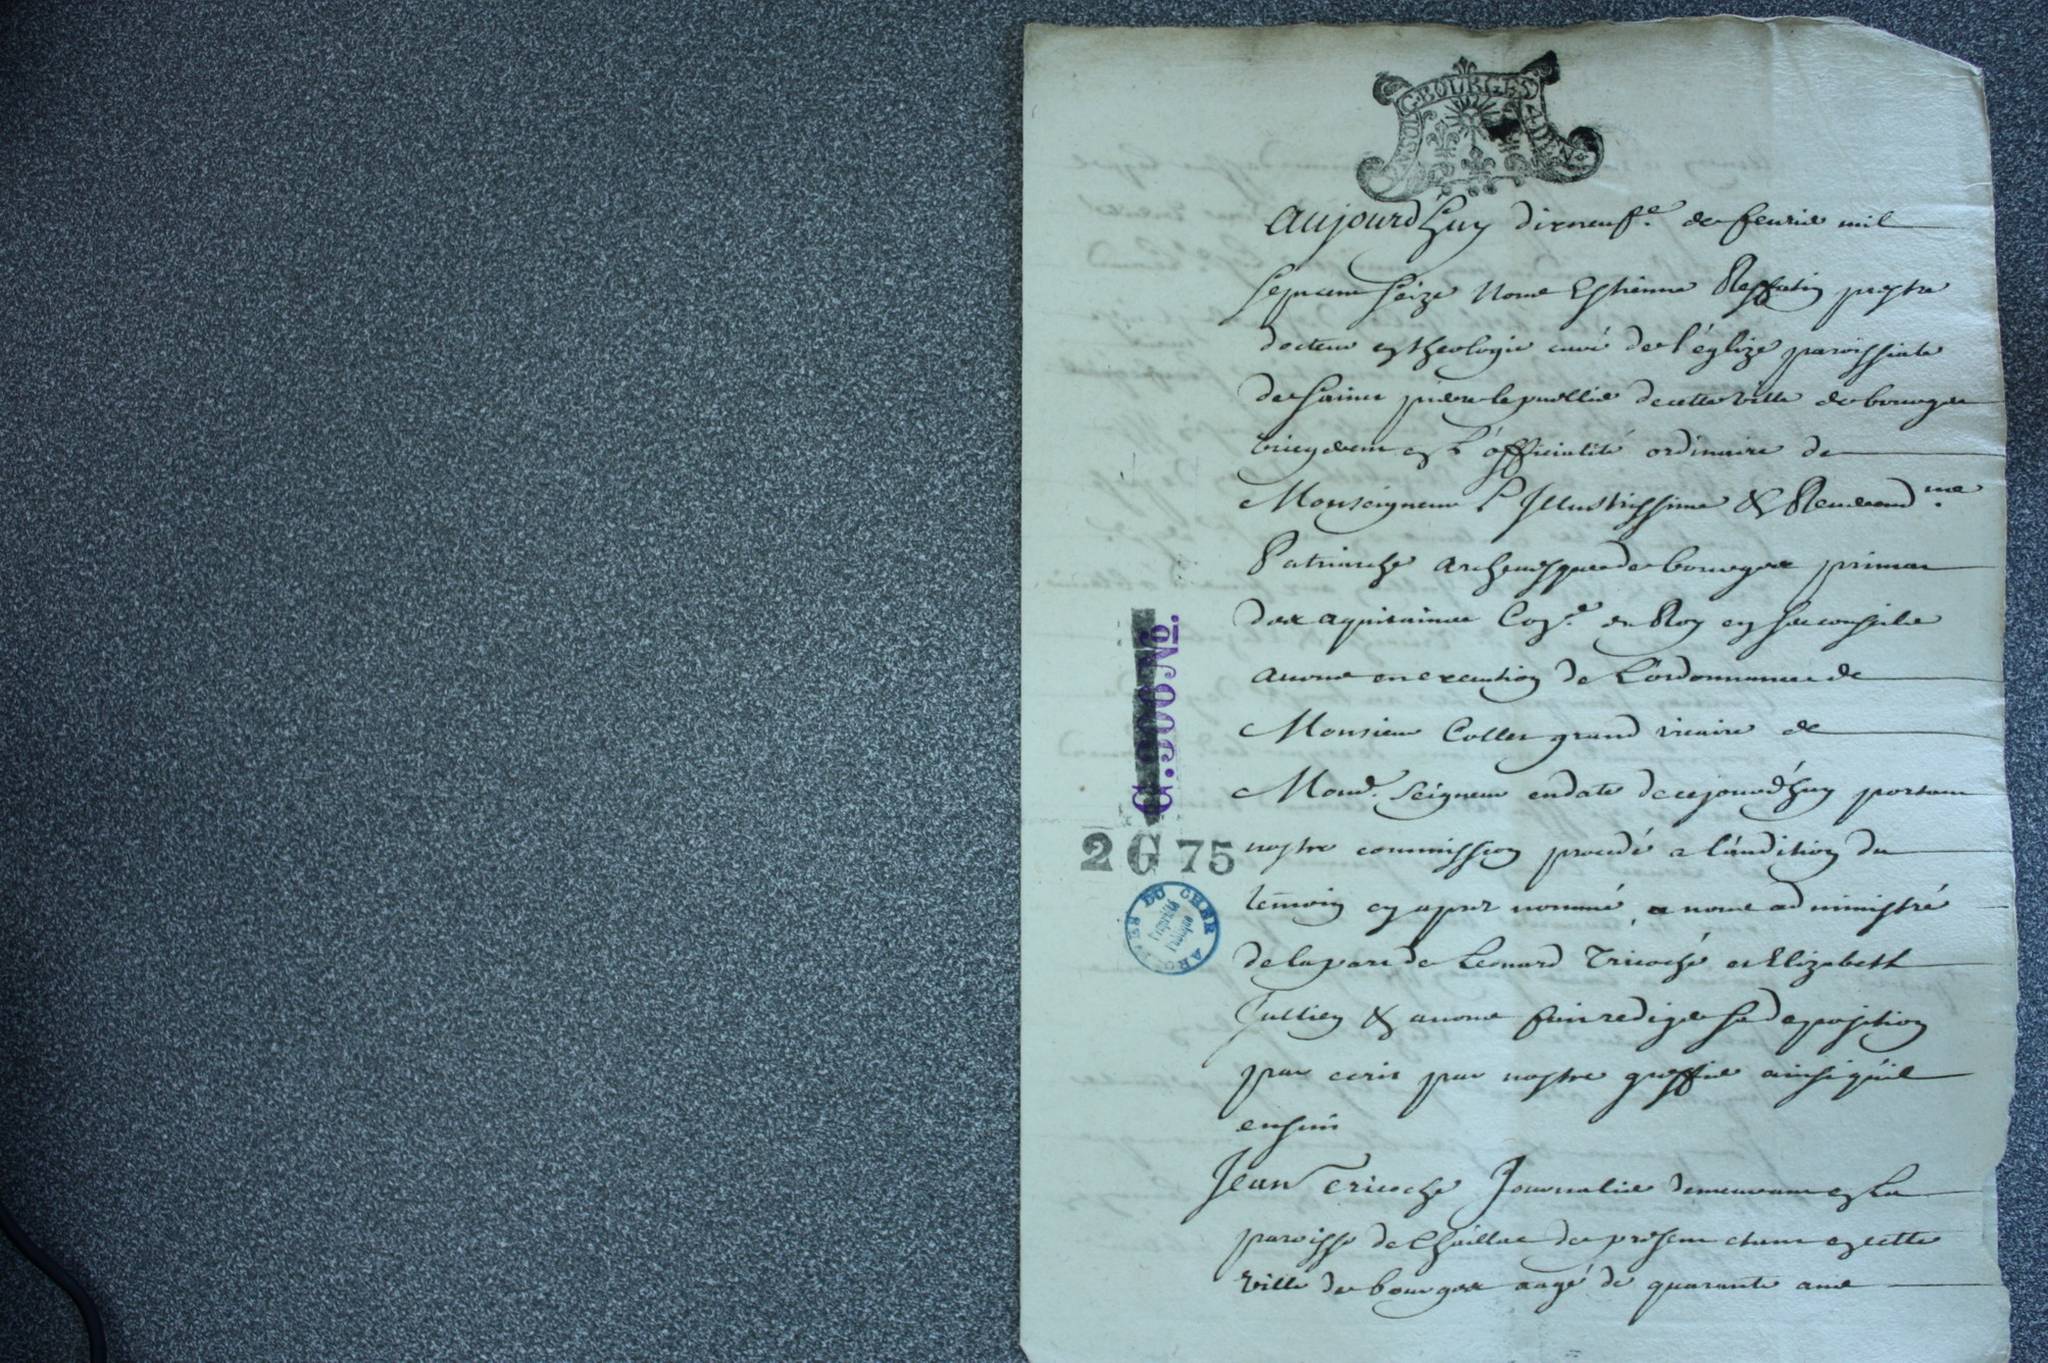 G BOURGES
aujourd'huy dixneuf.e de feurier mil
sept cent seize Nous Estienne prestre
docteur en theologie curé de l'églize paroissiale
de saint pierre le puellier de cette ville de bourges
vicegerent en l'officialité ordinaire de
Monseigneur l'Illustrissime & Reuerend.me
Patriarche archeuesque de bourges primat
des aquitaines Con.er du Roy en ses conseils
auons en execution de l'ordonnance de
Monsieur Collet grand vicaire de
Mond. Seigneur en date de cejourd'huy portant
nostre commission procedé a l'audition du
temoin cy apres nommé, a nous administré
de la part de Leonard Tricoché et Elizabeth
Jullien & auons fait rediger sa deposition
par ecrit par nostre greffier ainsi qu'il
ensuit
Jean Tricoche Journalier demeurant en la
paroisse de Chaillac de present etant en cette
ville de bourges aagé de quarante ans
G. 300 No.
2 G 75
ARCHIVES DU CHER
Propriété
Publique